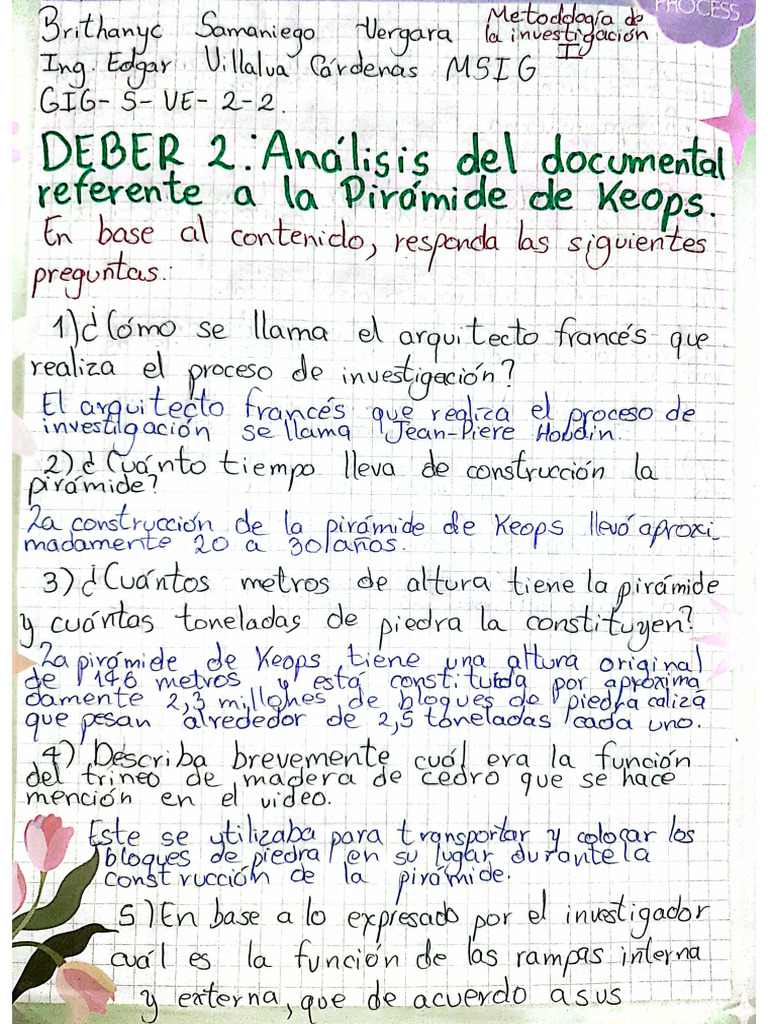 PROCESS
Brithanyc Samaniego Vergara Metodología de
la investigación
I
Ing. Edgar Villalva Cárdenas MSIG
GIG-S-VE-2-2.
DEBER 2: Análisis del documental
referente a la Pirámide de Keops.
En base al contenido, responda las siguientes
preguntas:
1)¿Cómo se llama el arquitecto francés que
realiza el proceso de investigación?
El arquitecto francés que realiza el proceso de
investigación se llama Jean-Piere Houdin.
2)¿Cuánto tiempo lleva de construcción la
pirámide?
La construcción de la pirámide de Keops llevó aproxi_
madamente 20 a 30 años.
3)¿Cuántos metros de altura tiene la pirámide
y cuántas toneladas de piedra la constituyen?
La pirámide de Keops tiene una altura original
de 146 metros y está constituida por aproxima
damente 2,3 millones de bloques de piedra caliza
que pesan alrededor de 2,5 toneladas cada uno.
4) Describa brevemente cuál era la función
del trineo de madera de cedro que se hace
mención en el video.
Este se utilizaba para transportar y colocar los
bloques de piedra en su lugar durante la
construcción de la pirámide.
5)En base a lo expresado por el investigador
cuál es la función de las rampas interna
y externa, que de acuerdo a sus